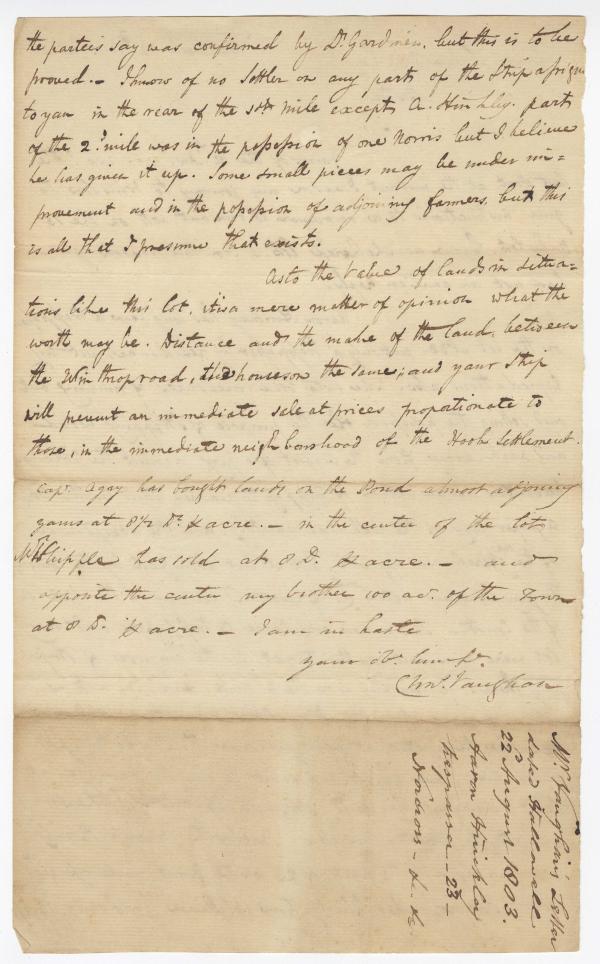 the parteis say was confirmed by Dr. Gardiner. but this is to be
proved. – I know of no settler on any part of the Strip assign
to you in the rear of the mile except A. Hinkly. part
of the 2d. mile was in the possession of one Norris but I believe
he has given it up. Some small pieces may be under im=
provement and in the possession of adjoining farmers. but this
is all that I presume that exists.
As to the value of lands in situa=
tions like this lot, it is a mere matter of opinion what the
worth may be. Distance and the make of the land, between
the Winthrop road, the houses on the same; and your strip
will prevent an immediate sale at prices proportionate to
those, in the immediate neighbourhood of the Hook Settlement.
Capt. Agay has bought lands on the Pond almost adjoining
yours at 8½ Ds. ⅌ acre. – in the center of the lot
Mr. Whipple has sold at 8 D. ⅌ acre. – and
opposite the center my brother 100 ac. of the Town
at 8 D. ⅌ acre. – I am in haste
your Ob. hum Sr.
Chas. Vaughan
Mr. Vaughan's Letter
dated Hallowell
22d August 1803.
Aaron Hinckley
trespasser – 2d –
Norcross – &c. &c.